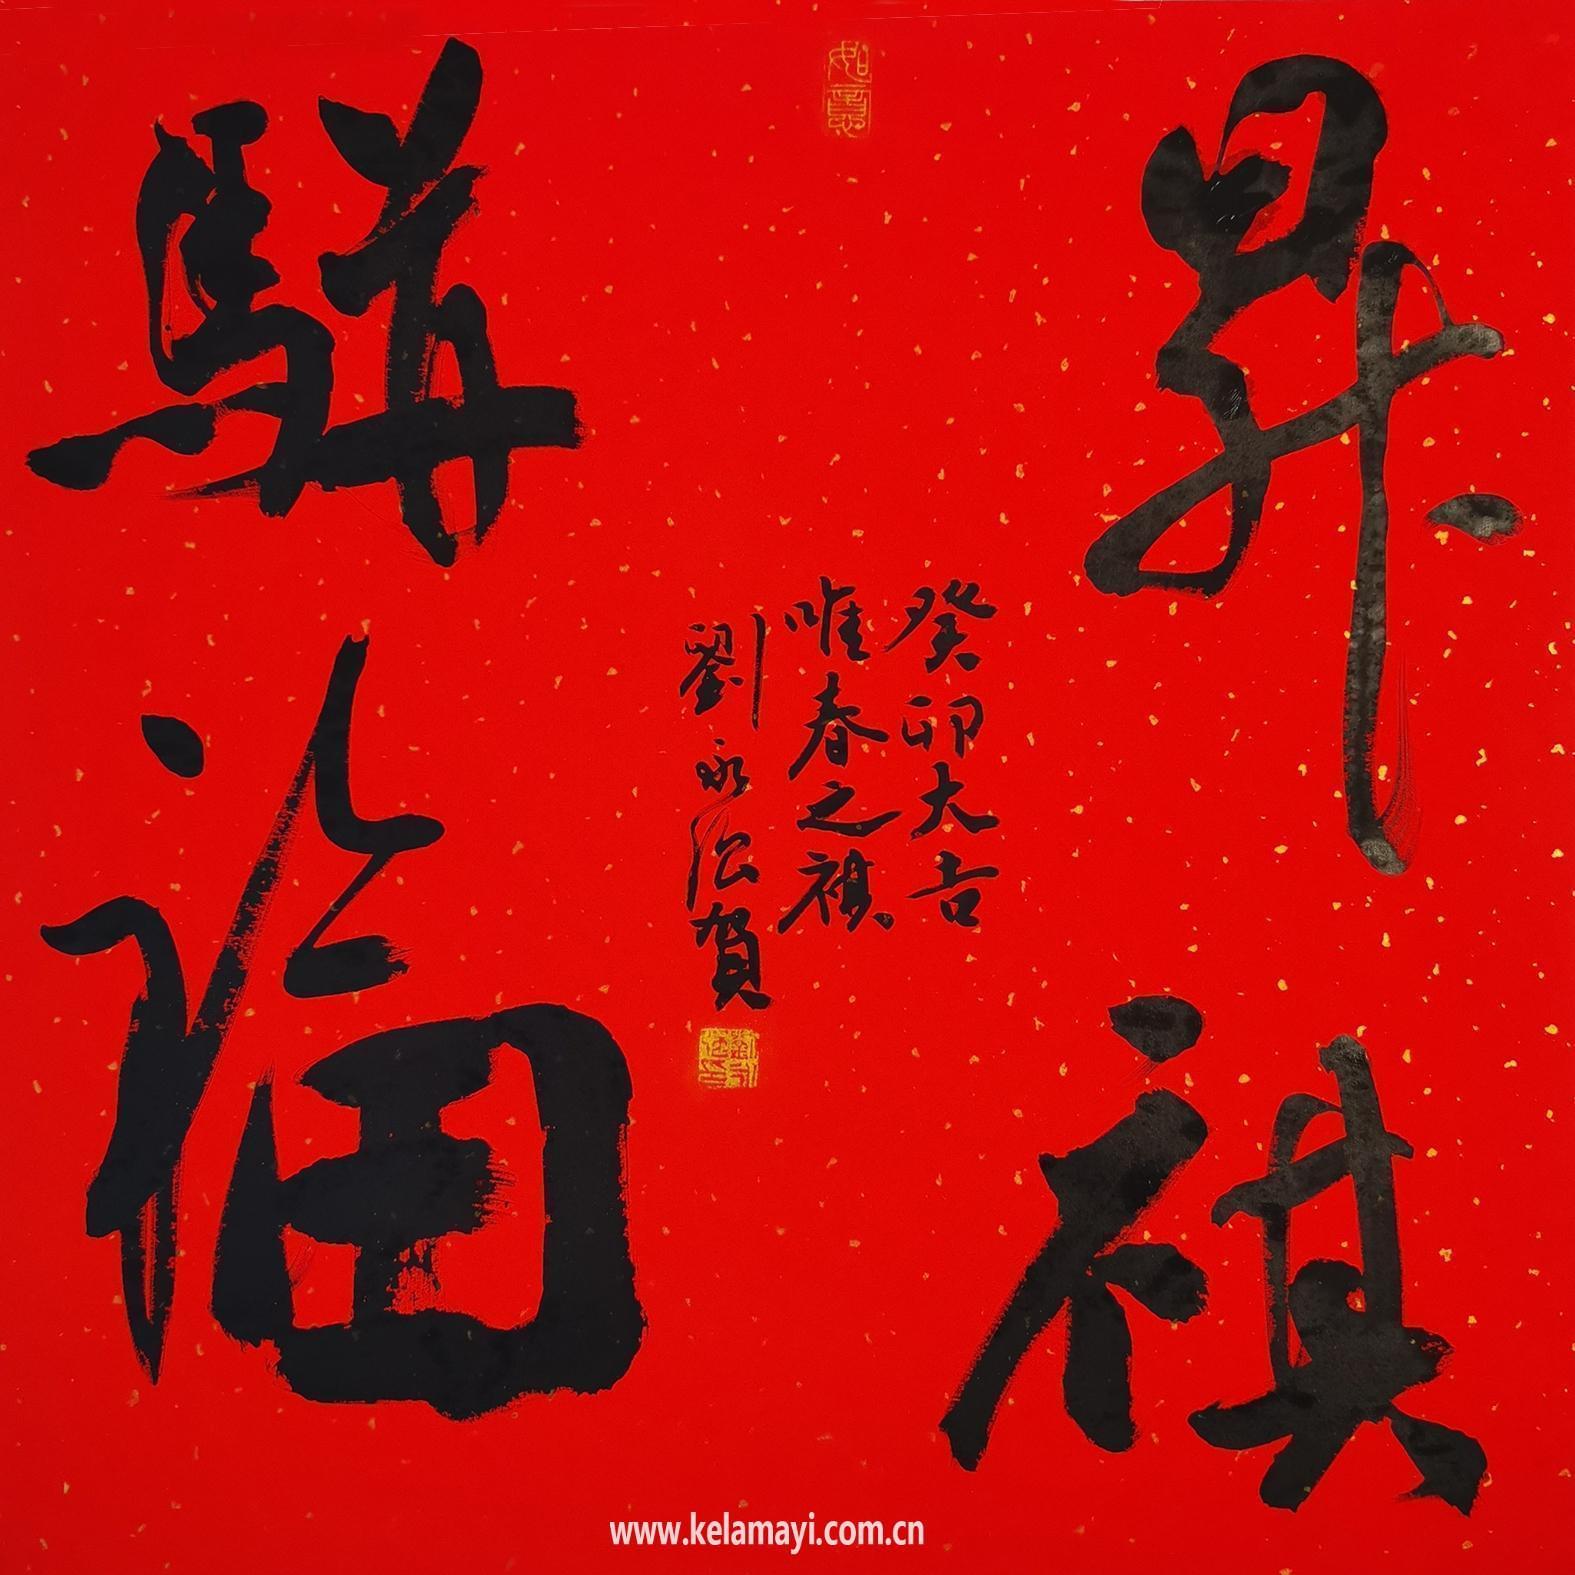 昇祺
駢福
如意
癸卯大吉
唯春之祺
劉永賀
www.kelamayi.com.cn